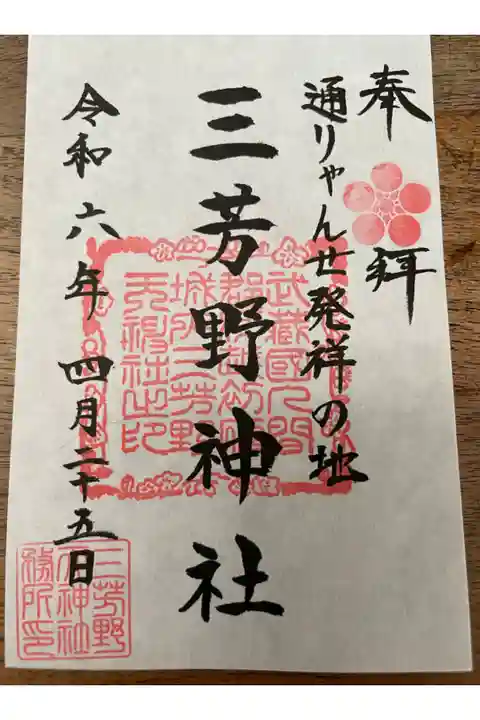 奉拝
通りゃんせ発祥の地
三芳野神社
令和六年 四月二十五日
武蔵國入間
郡川越初雁
城内三芳野
天神社之印
三芳野
神社
務所印